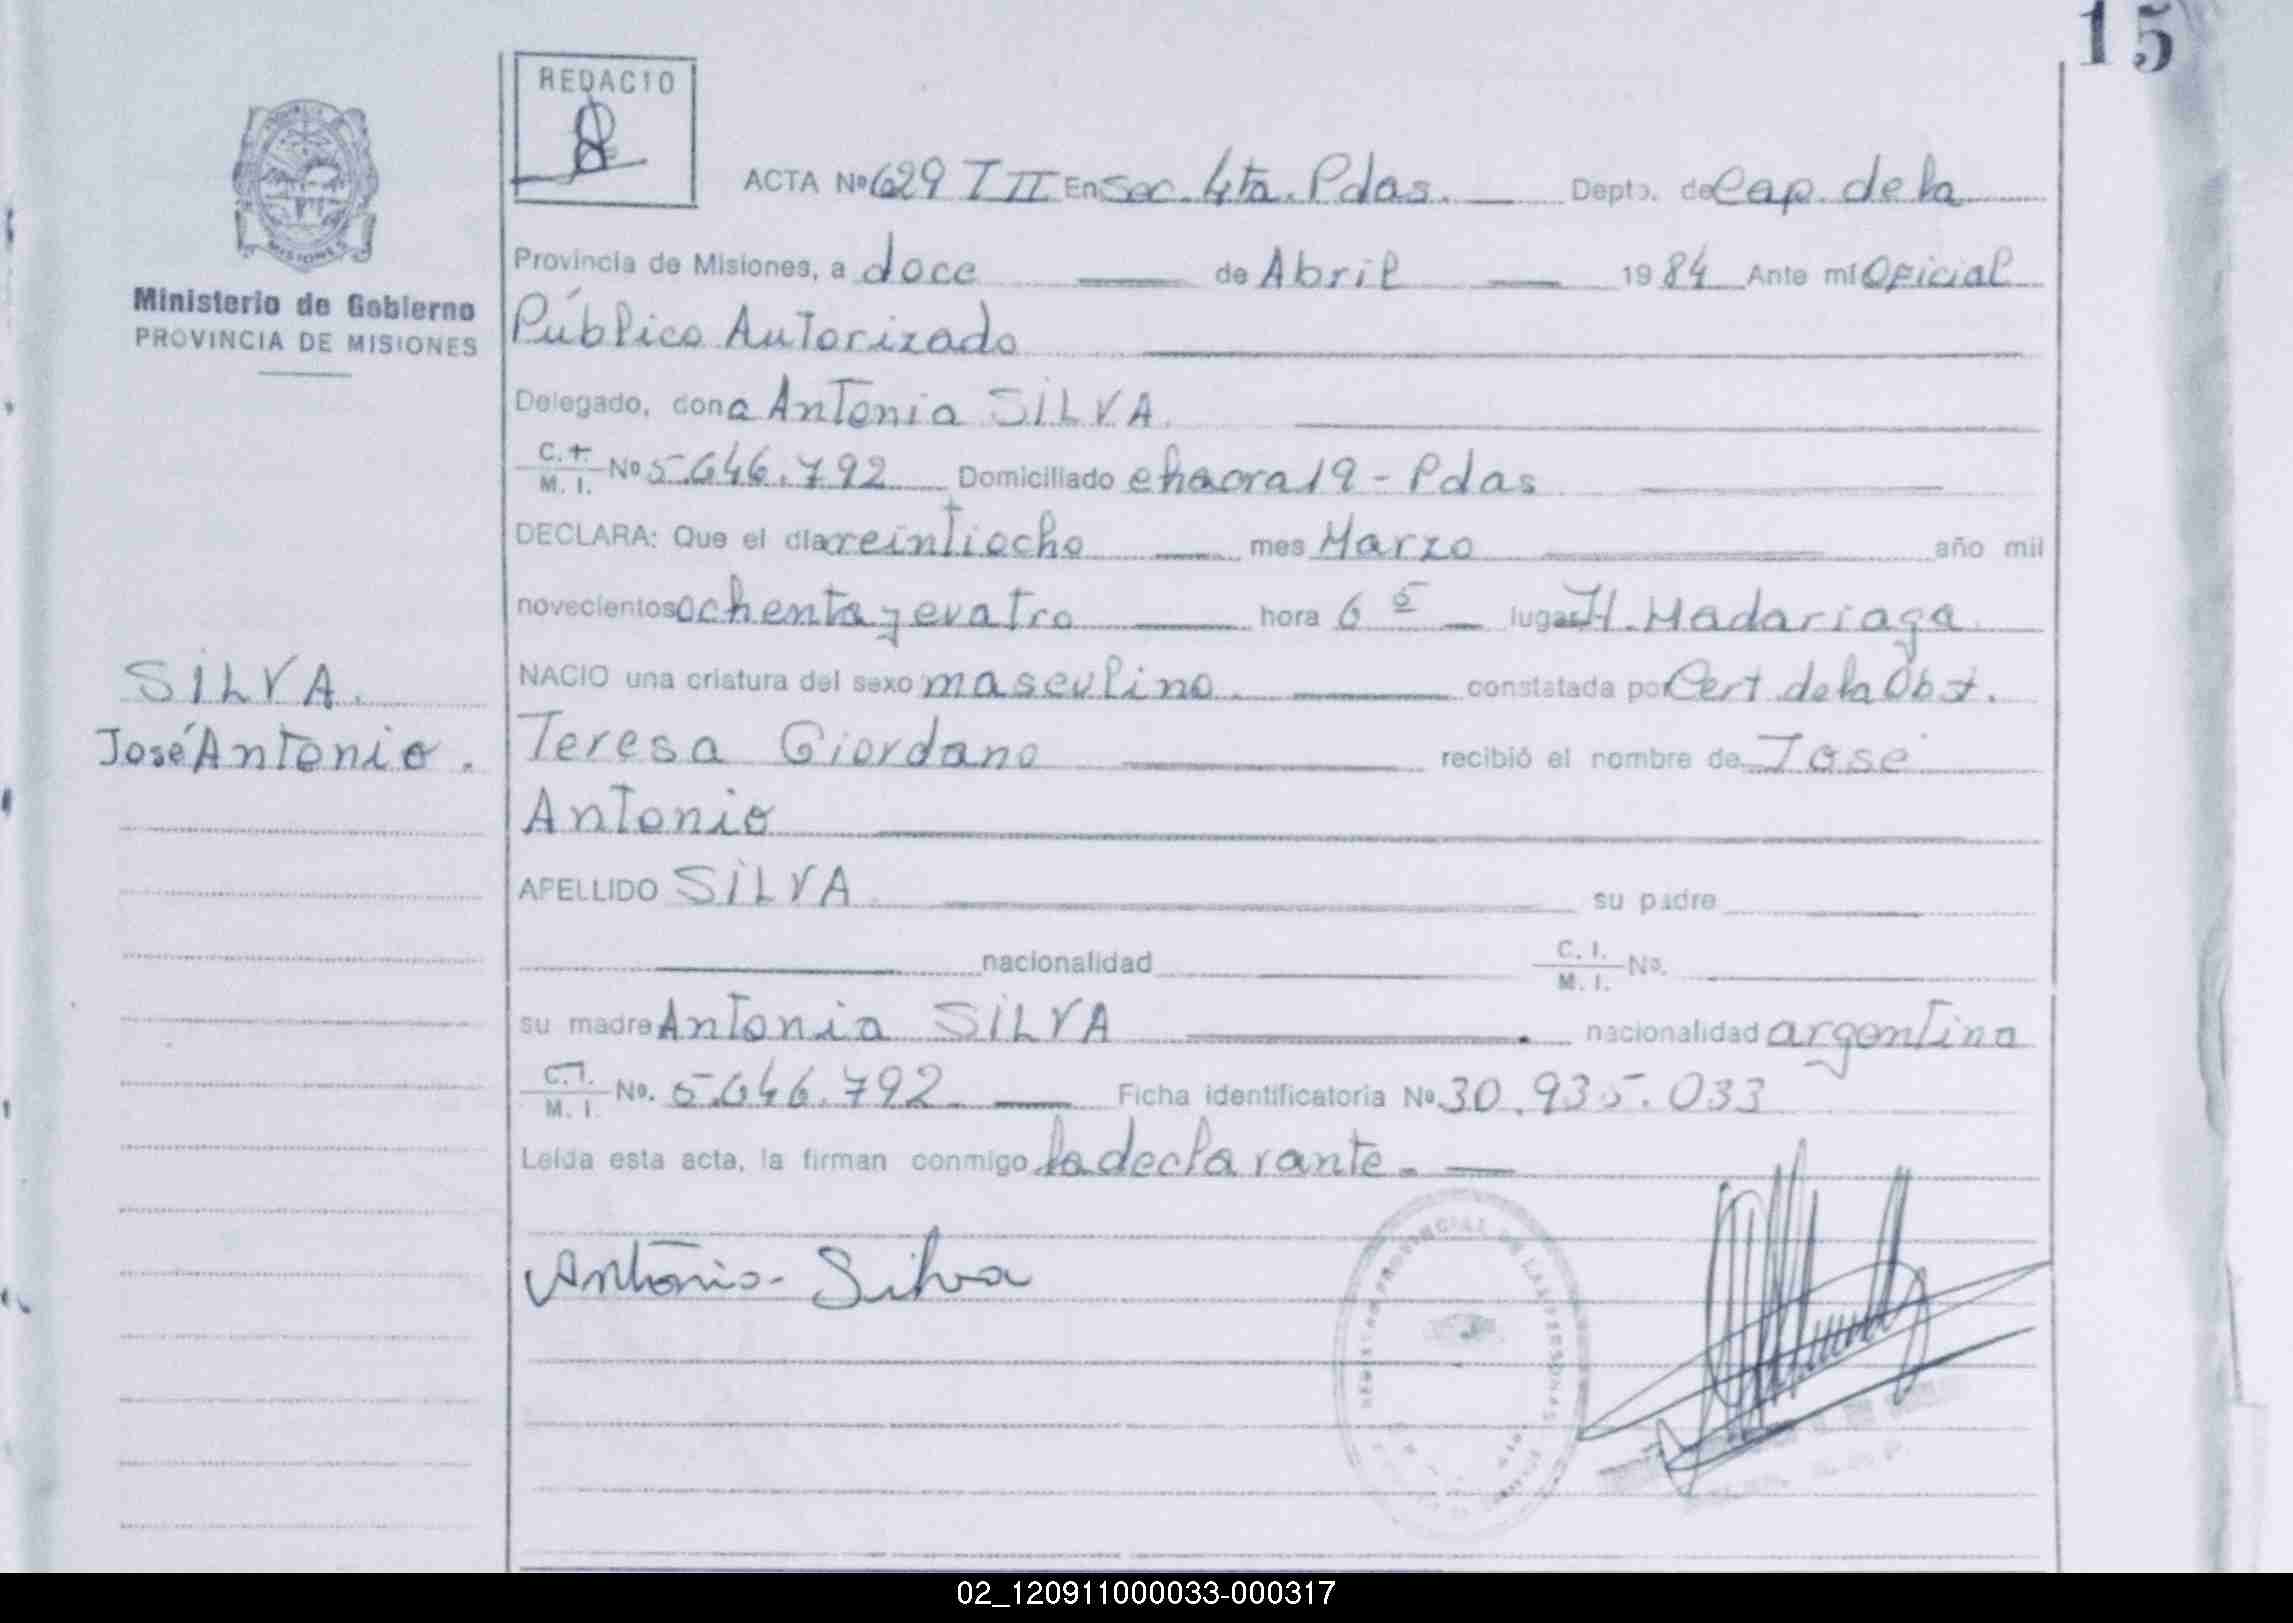 15
REDACTO
ACTA Nº 629 T II En Sec. 4ta. Pdas. Depto. de Cap. de la
MISIONES
Provincia de Misiones, a doce de Abril 1984 Ante mí Oficial
Ministerio de Gobierno
PROVINCIA DE MISIONES
Público Autorizado
Delegado, dona Antonia SILVA.
C. I.
M. I. Nº 5.646.792 Domiciliado chacra 19 - Pdas
DECLARA: Que el día veintiocho mes Marzo año mil
novecientos ochenta y cuatro hora 6 5 lugar H. Madariaga
NACIO una criatura del sexo masculino. constatada por Cert. de la Obst.
SILVA.
José Antonio.
Teresa Giordano recibió el nombre de José
Antonio
APELLIDO SILVA. su padre
nacionalidad C. I.
M. I. No.
su madre Antonia SILVA nacionalidad argentina
C. I.
M. I. No. 5.646.792 Ficha identificatoria Nº 30.935.033
Leída esta acta, la firman conmigo la declarante.
Antonia Silva
PROVINCIAL DE LAS PERSONAS
02_120911000033-000317